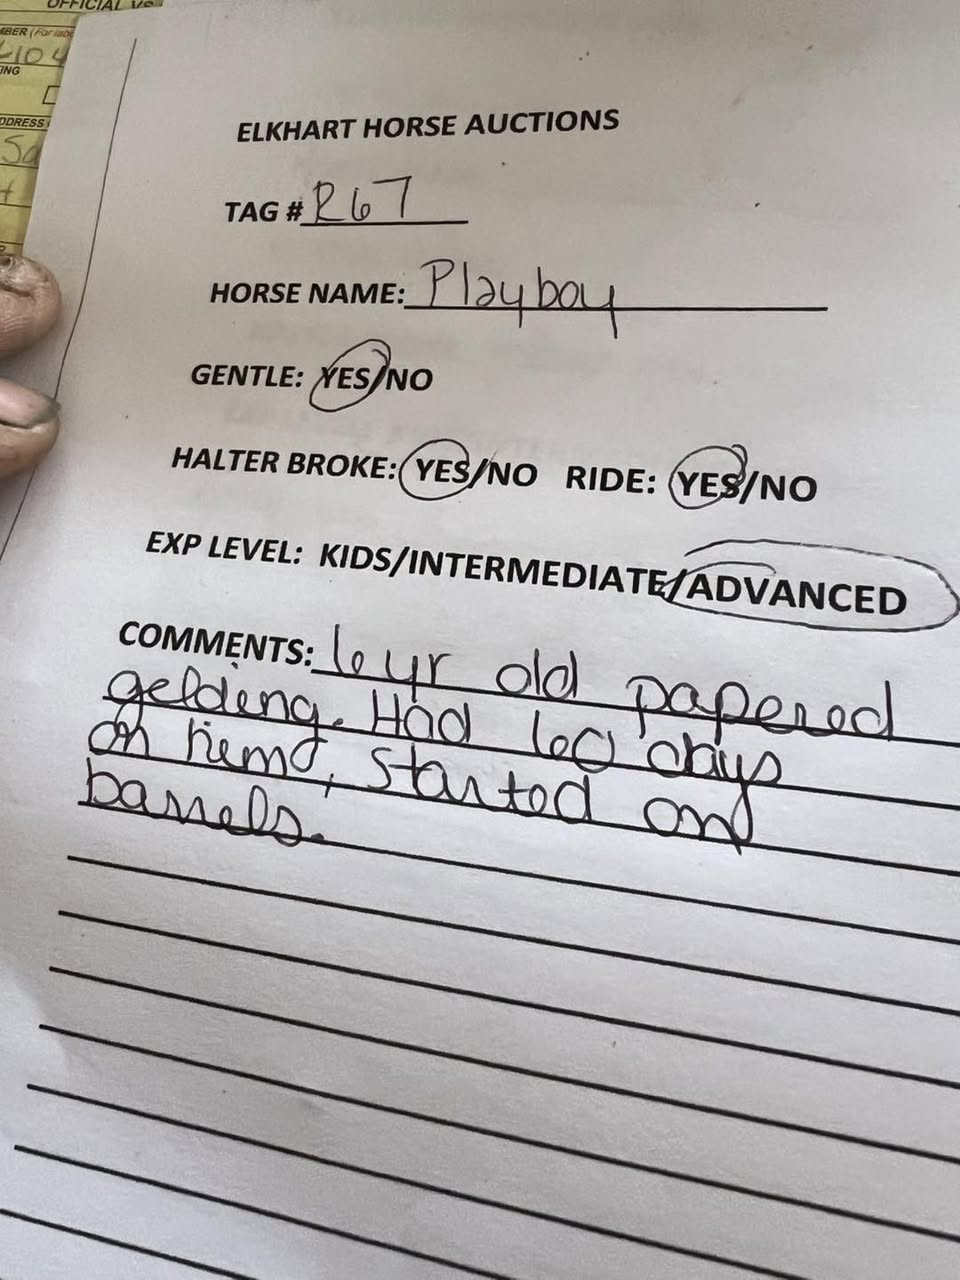 OFFICIAL VS
MBER (For lab
ING
DDRESS
Sa
ELKHART HORSE AUCTIONS
TAG # R67
HORSE NAME: Playboy
GENTLE: YES/NO
HALTER BROKE: YES/NO RIDE: YES/NO
EXP LEVEL: KIDS/INTERMEDIATE/ADVANCED
COMMENTS: 6 yr old papered
gelding. Had 60 days
on him, started on
barrels.